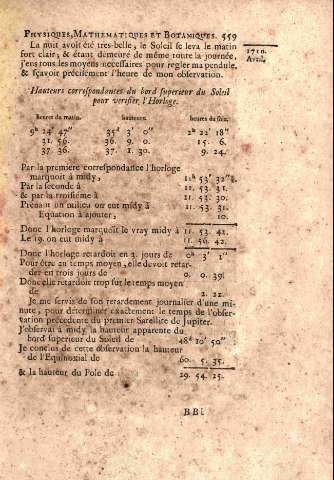 PHYSIQUES, MATHEMATIQUES ET BOTANIQUES. 559
La nuit avoit été tres-belle, le Soleil se leva le matin
fort clair; & étant demeuré de même toute la journée,
j'eus tous les moyens necessaires pour regler ma pendule,
& sçavoir précisément l'heure de mon observation.
1710.
Avril.
Hauteurs correspondantes du bord superieur du Soleil
pour verifier l'Horloge.
heures du matin. hauteurs. heures du soir.
9h 24' 47" 35d 3' 0" 2h 22' 18"
31. 56. 36. 9. 0. 15. 6.
37. 36. 37. 1. 30. 9. 24.
Par la premiere correspondance l'horloge
marquoit à midy, 11h 53' 32"
Par la seconde à 11. 53. 31.
& par la troisiéme à 11. 53. 30.
Prenant un milieu on eut midy à 11. 53. 31.
Equation à ajouter, 10.
Donc l'horloge marquoit le vray midy à 11. 53. 41.
Le 19. on eut midy à 11. 56. 42.
Donc l'horloge retardoit en 2. jours de 0h 3' 1"
Pour être au temps moyen, elle devoit retar-
der en trois jours de 0. 0. 39.
Donc elle retardoit trop sur le temps moyen
de 2. 22.
Je me servis de son retardement journalier d'une mi-
nute, pour déterminer exactement le temps de l'obser-
vation précedente du premier Satellite de Jupiter.
J'observai à midy la hauteur apparente du
bord superieur du Soleil de 48d 10' 50"
Je conclus de cette observation la hauteur
de l'Equinoxial de 60. 5. 35.
& la hauteur du Pole de 29. 54. 25.
BBb